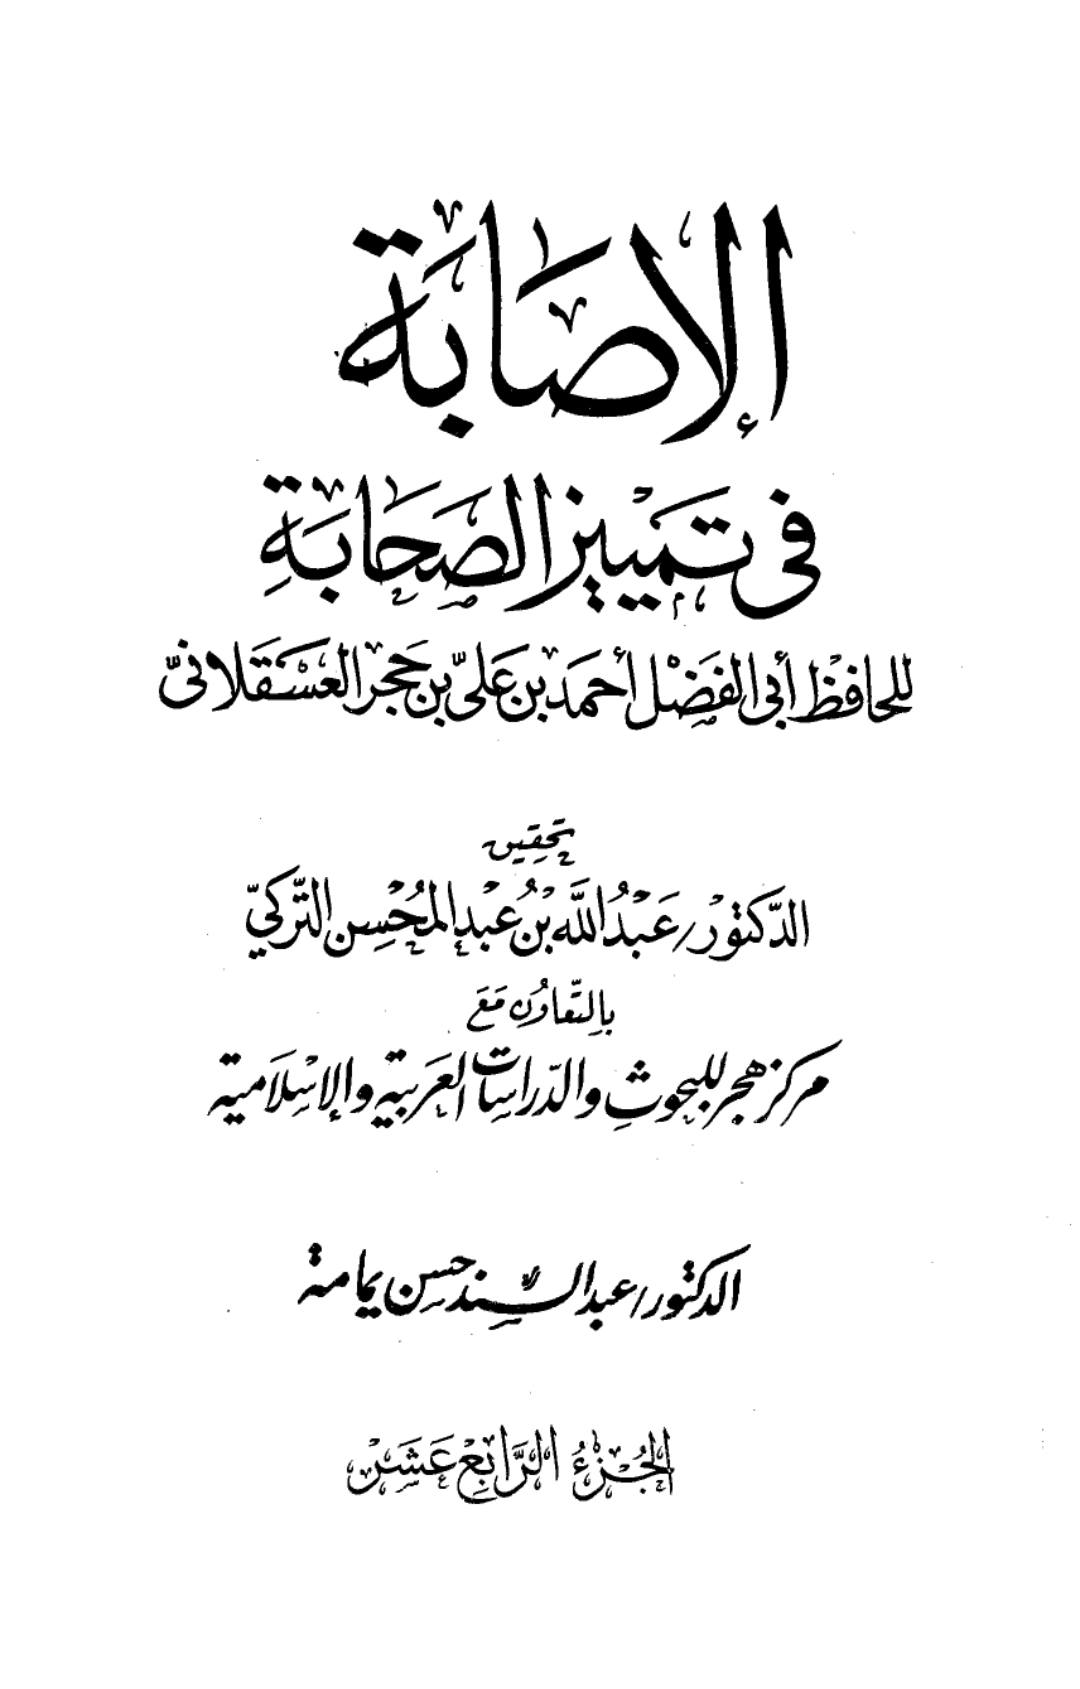 الإصَابَة
فى تمييز الصَحَابَةِ
للحافظ أبى الفَضْل أحمَد بن عَلىّ بن حَجَر العَسْقَلانىّ
تحقيق
الدّكتوْر/ عَبْدُ اللَّه بْنُ عَبْدِ المُحْسِن التّركيّ
بالتّعاوُن مَعَ
مركز هجر للبحوثِ والدّراسات العَربية والإسْلَامية
الدكتور/ عبد السند حسن يمامة
الجُزْءُ الرَّابِعْ عَشَرْ